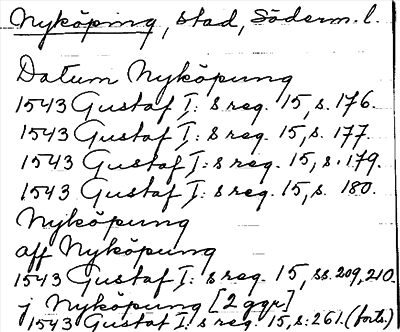 Nyköping, stad, Söderm. l.
Datum Nyköpung
1543 Gustaf I:s reg. 15, s. 176.
1543 Gustaf I:s reg. 15, s. 177.
1543 Gustaf I:s reg. 15, s. 179.
1543 Gustaf I:s reg. 15, s. 180.
Nyköpung
aff Nyköpung
1543 Gustaf I:s reg. 15, ss. 209, 210.
j Nyköpung [2 ggr]
1543 Gustaf I:s reg. 15 s. 261. (forts.)